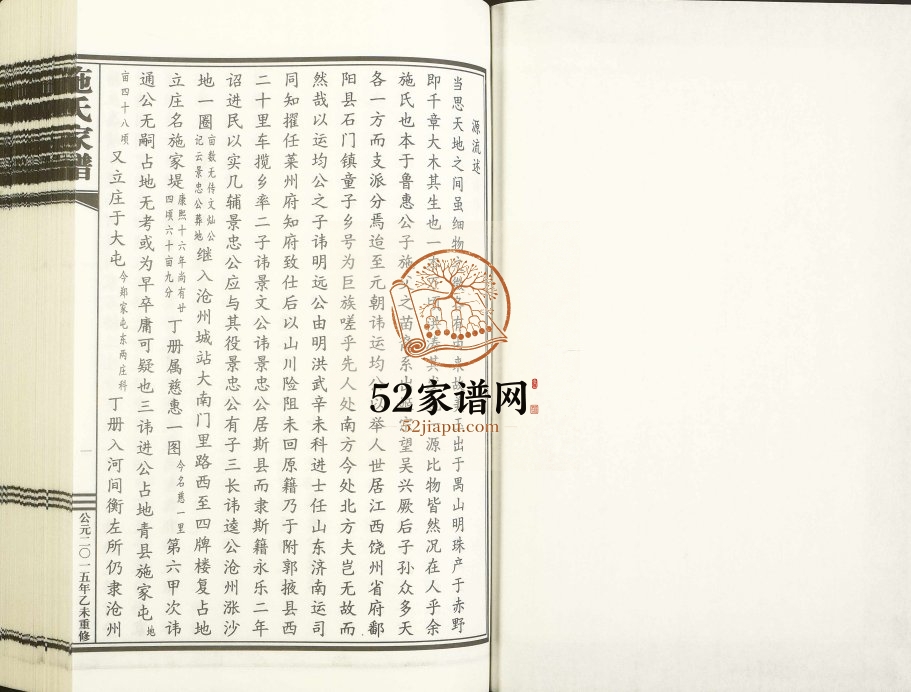 源流述
当思天地之间虽细物 有由来故 玉出于禺山明珠产于赤野
即千章大木其生也一 源比物皆然况在人乎余
施氏也本于鲁惠公子施 之苗 系出 望吴兴厥后子孙众多天
各一方而支派分焉迨至元朝讳运均公以举人世居江西饶州省府鄱
阳县石门镇童子乡号为巨族嗟乎先人处南方今处北方夫岂无故而
然哉以运均公之子讳明远公由明洪武辛未科进士任山东济南运司
同知擢任莱州府知府致仕后以山川险阻未回原籍乃于附郭掖县西
二十里车揽乡率二子讳景文公讳景忠公居斯县而隶斯籍永乐二年
诏进民以实几辅景忠公应与其役景忠公有子三长讳逵公沧州涨沙
地一圈亩数无传文灿公记云景忠公葬地继入沧州城站大南门里路西至四牌楼复占地
立庄名施家堤康熙十六年尚有廿四顷六十亩九分丁册属慈惠一图今名慈一里第六甲次讳
通公无嗣占地无考或为早卒庸可疑也三讳进公占地青县施家屯地
亩四十八顷又立庄于大屯今郑家屯东两庄科丁册入河间衡左所仍隶沧州
施氏家谱
一
公元二〇一五年乙未重修
52家谱网
52jiapu.com